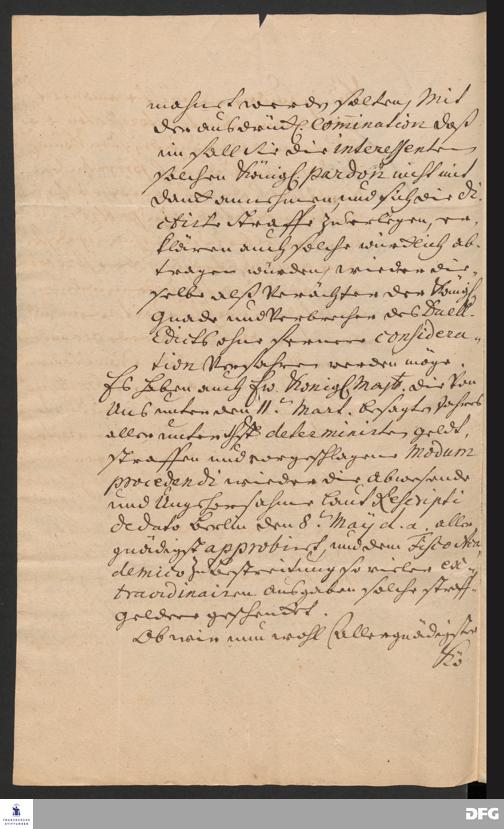 mahnet werden solten, Mit
der ausdrückl. Commination daß
im fall sie die interessenten
solchen Königl. pardon nicht mit
Danck annehmen, und sich die di-
ctirte straffe zu erlegen, er-
klären auch solche würcklich ab-
tragen würden, wieder die-
selbe alß Verächter der Königl.
Gnade und Verbrecher des Duell-
Edicts ohne fernere considera-
tion Verfahren werden möge.
Es haben auch Ew. Königl. Majt. die von
Uns unter den 11. Mart. besagten Jahres
allerunterthgst determinirten geldt-
straffen und vorgeschlagenen Modum
procedendi wieder die abwesende
und Ungehorsahme laut Rescripti
de dato Berlin den 8. Maij d. a. aller-
gnädigst approbiret, und dem Fisco Aca-
demico zu bestreitung so vieler ex-
traordinairen Ausgaben solche straff-
gelder geschencket.
Ob wir nun wohl (allergnädigster
Kö
FRANCKESCHE
STIFTUNGEN
DFG